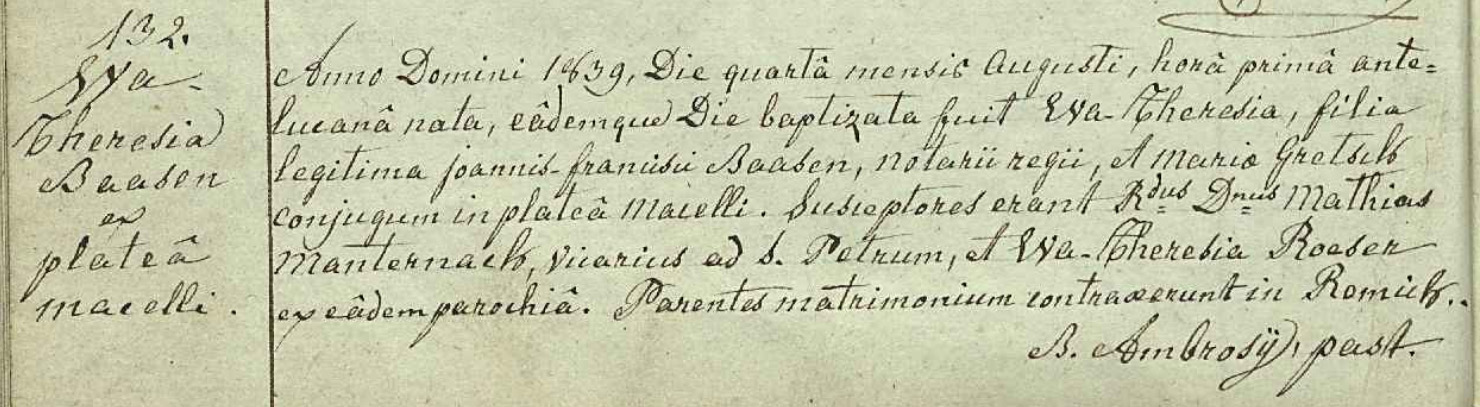 132.
Eva-
Theresia
Baasen
ex
plateâ
macelli.
Anno Domini 1839, Die quartâ mensis Augusti, horâ primâ ante=
lucanâ nata, eâdemque Die baptizata fuit Eva-Theresia, filia
legitima joannis-francisci Baasen, notarii regii, et mariæ Gretsch
conjugum in plateâ macelli. Susceptores erant Rdus Dnus Mathias
Manternach, vicarius ad S. Petrum, et Eva-Theresia Roeser
ex eâdem parochiâ. Parentes matrimonium contraxerunt in Remich..
B. Ambrosÿ, past.